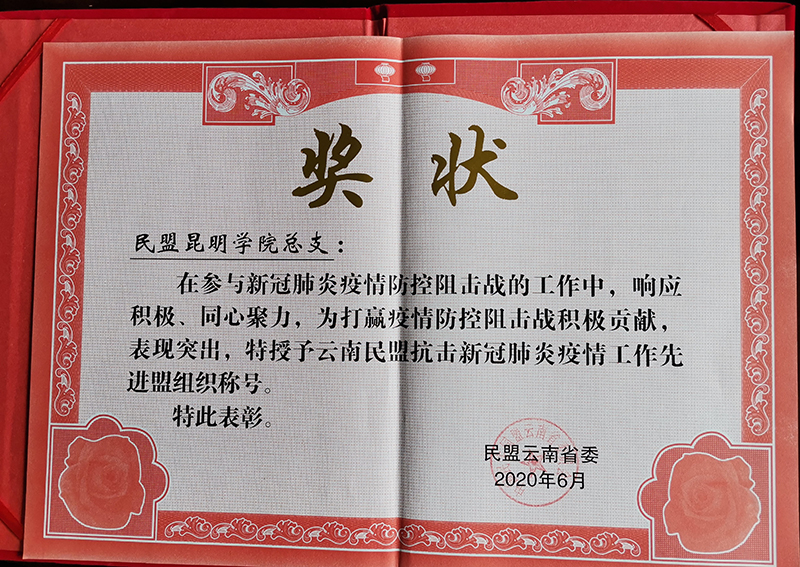 奖状
民盟昆明学院总支：
在参与新冠肺炎疫情防控阻击战的工作中，响应
积极、同心聚力，为打赢疫情防控阻击战积极贡献，
表现突出，特授予云南民盟抗击新冠肺炎疫情工作先
进盟组织称号。
特此表彰。
民盟云南省委
2020年6月